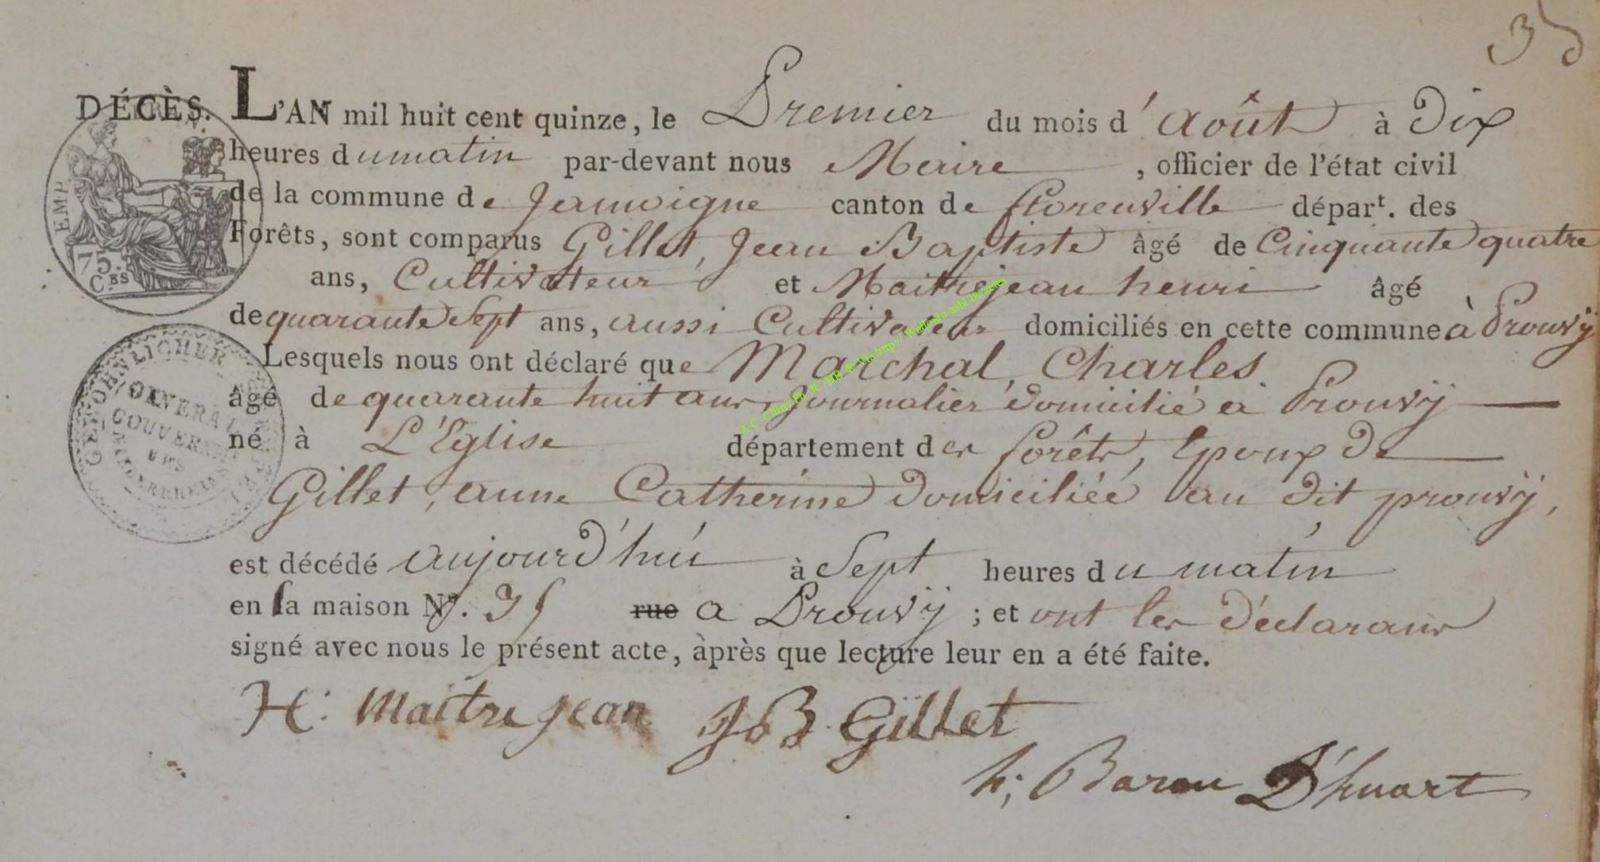 35
DÉCÈS. L'AN mil huit cent quinze, le Premier du mois d'Août à Dix
heures du matin par-devant nous Maire, officier de l'état civil
de la commune de Jamoigne canton de florenville départ. des
Forêts, sont comparus Gillet, Jean Baptiste âgé de Cinquante quatre
ans, Cultivateur et Maitrejean henri âgé
de quarante Sept ans, aussi Cultivateur domiciliés en cette commune à Prouvÿ
Lesquels nous ont déclaré que Marchal, Charles
âgé de quarante huit ans, journalier domicilié à Prouvÿ
né à L'Eglise département des forêts, Epoux de
Gillet, anne Catherine domiciliée au dit prouvÿ,
est décédé aujourd'hui à Sept heures du matin
en la maison N°. 35 rue a Prouvÿ ; et ont les déclarans
signé avec nous le présent acte, après que lecture leur en a été faite.
H: Maitrejean JB Gillet
h; Baron D'huart
EMP
75 Ces
GENERAL
GOUVERNE